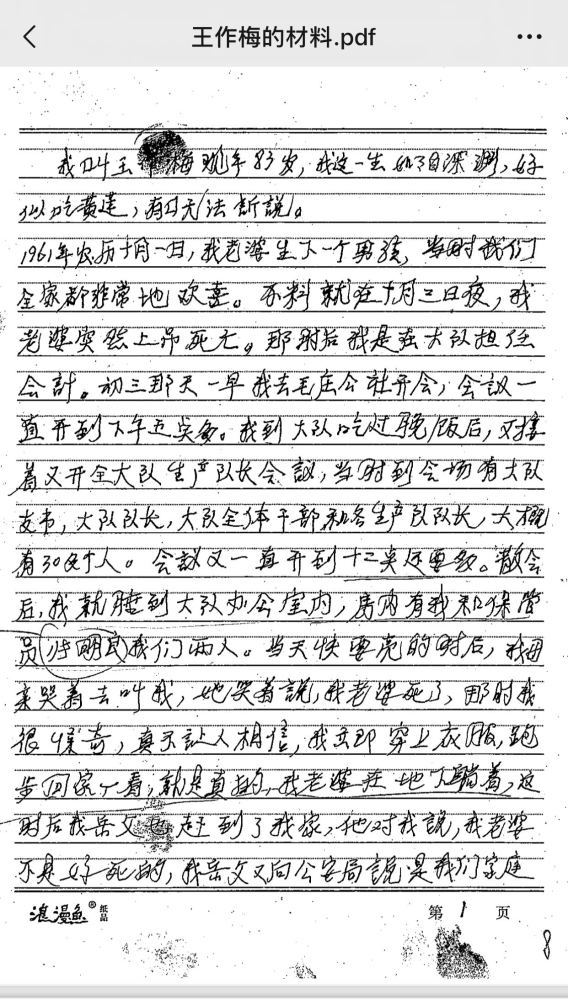 王作梅的材料.pdf
我叫王作梅现年83岁,我这一生如同深渊,好
似吃黄莲,有口无法诉説。
1961年农历十月一日,我老婆生下一个男孩,当时我们
全家都非常地欢喜。不料就在十月三日夜,我
老婆突然上吊死亡。那时后我是在大队担任
会計。初三那天一早我去毛庄公社开会,会议一
直开到下午五点多。我到大队吃过晚饭后,对接
着又开全大队生产队长会議,当时到会场有大队
支书,大队队长,大队全体干部和各生产队队长,大概
有30多个人。会议又一直开到十二点还要多。散会
后,我就睡到大队办公室内,房内有我和保管
员 明民我们两人。当天快要亮的时后,我母
亲哭着去叫我,她哭着説,我老婆死了,那时我
很惊奇,真不让人相信,我立即穿上衣服,跑
步回家一看,就是真的,我老婆在地下躺着,这
时后我岳父也赶到了我家,他对我説,我老婆
不是好死的,我岳父又向公安局説是我们家庭
浪漫鱼®纸品
第 1 页
8